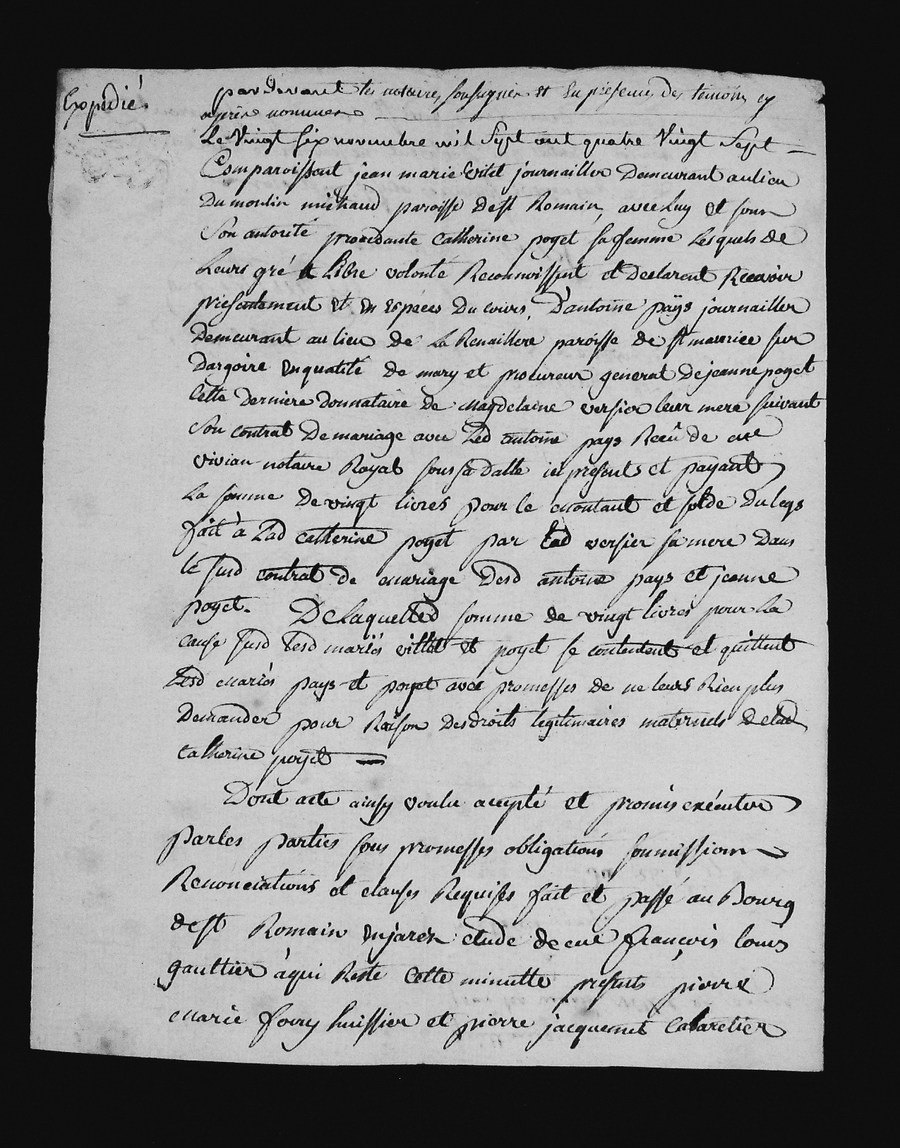 Expedié
pardevant les notaires soussignes et En presence des temoins cy
apres nommes
Le vingt six novembre mil sept cent quatre vingt sept
Comparoissent jean marie vitel journaillier Demeurant au lieu
Du moulin michaud paroisse de st Romain, avec luy et sous
son autorité procedante catherine poyet sa femme Lesquels de
Leurs gré & Libre volonté Reconnoissent et declarent Recevoir
presentement et En espéces Du cours, D'antoine paÿs journaillier
Demeurant au lieu de La Renaillere paroisse de st maurice sur
Dargoire En qualité de mary et procureur general de jeanne poyet
Cette derniere donnataire de magdelaine versier leur mere suivant
son contrat de mariage avec Led antoine pays Recû de me
vivian notaire Royal sous sa datte icy presents et payant
La somme De vingt livres pour le montant et solde Du legs
fait à Lad catherine poyet par Lad versier sa mere Dans
le susd contrat de mariage Desd antoine pays et jeanne
poyet. De laquelle d somme de vingt livres pour La
cause susd Lesd mariés vittel et poyet se contentent et quittent
Lesd mariés pays et poyet avec promesses de ne leurs Rien plus
Demander pour Raison des droits legitimaires maternels de lad
catherine poyet
Dont acte ainsy voulu accepté et promis exécuter
par les parties sous promesses obligations soumissions
Renonciations et clauses Requises fait et passé au Bourg
de st Romain En jarez etude de me françois louis
gaultier à qui Reste Cette minutte presents pierre
marie huissier et pierre jacquemet Cabaretier